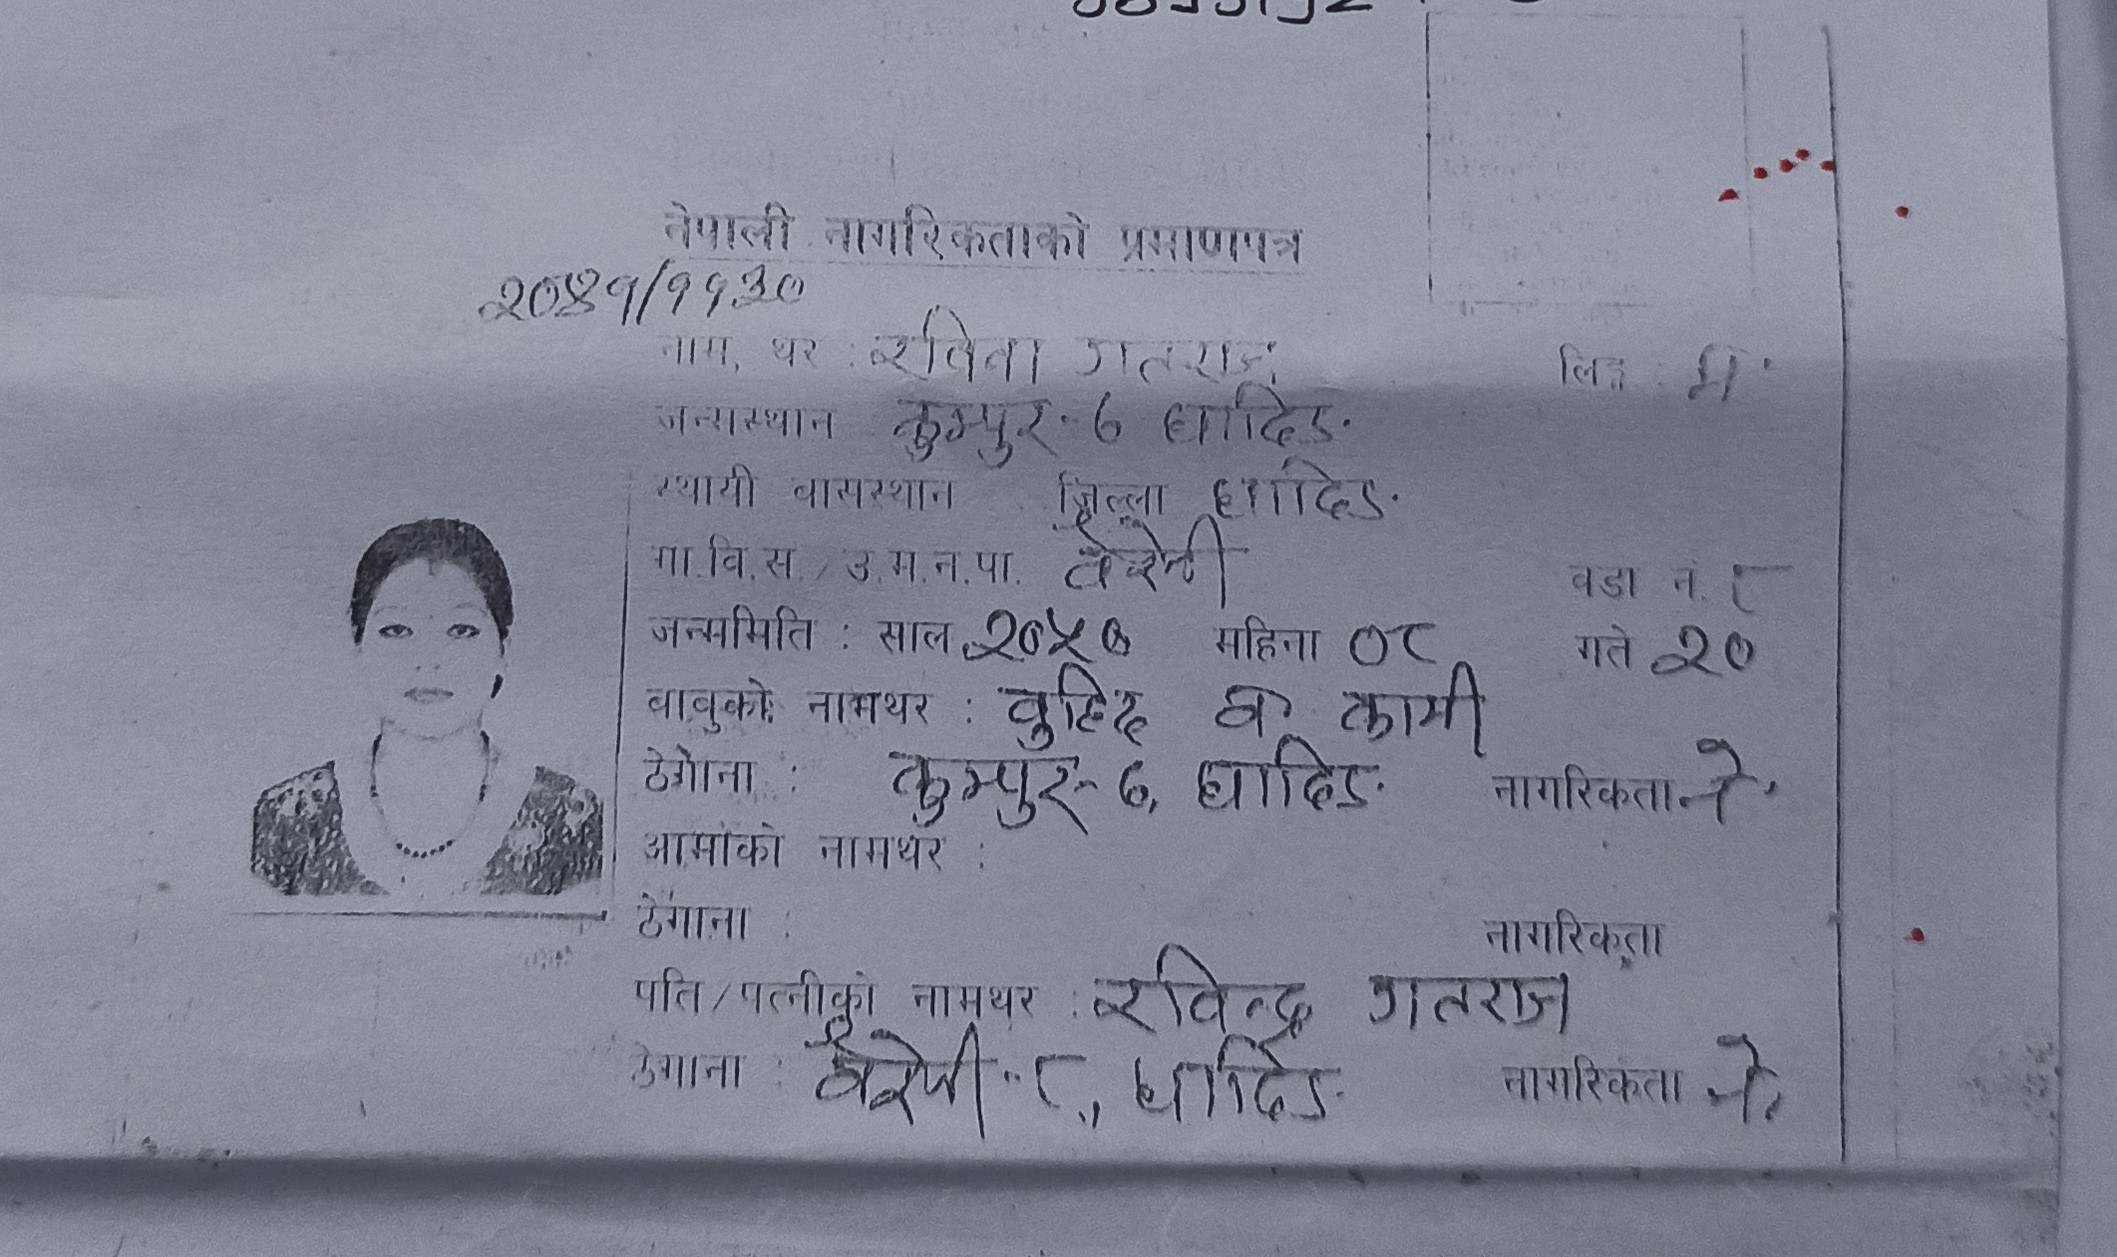 नेपाली नागरिकताको प्रमाणपत्र
२०४१/११३०
नाम, थर : रविता गतराज लिङ्ग : म.
जन्मस्थान कुम्पुर - ७ धादिङ.
स्थायी वासस्थान जिल्ला धादिङ.
गा.वि.स./उ.म.न.पा. बैरेनी वडा नं. ८
जन्ममिति : साल २०५७ महिना ०८ गते २०
बाबुको नामथर : कामी
ठेगाना : कुम्पुर - ७, धादिङ. नागरिकता ने.
आमाको नामथर :
ठेगाना : नागरिकता
पति/पत्नीको नामथर : रविन्द्र गतराज
ठेगाना : बैरेनी - ८, धादिङ. नागरिकता ने.